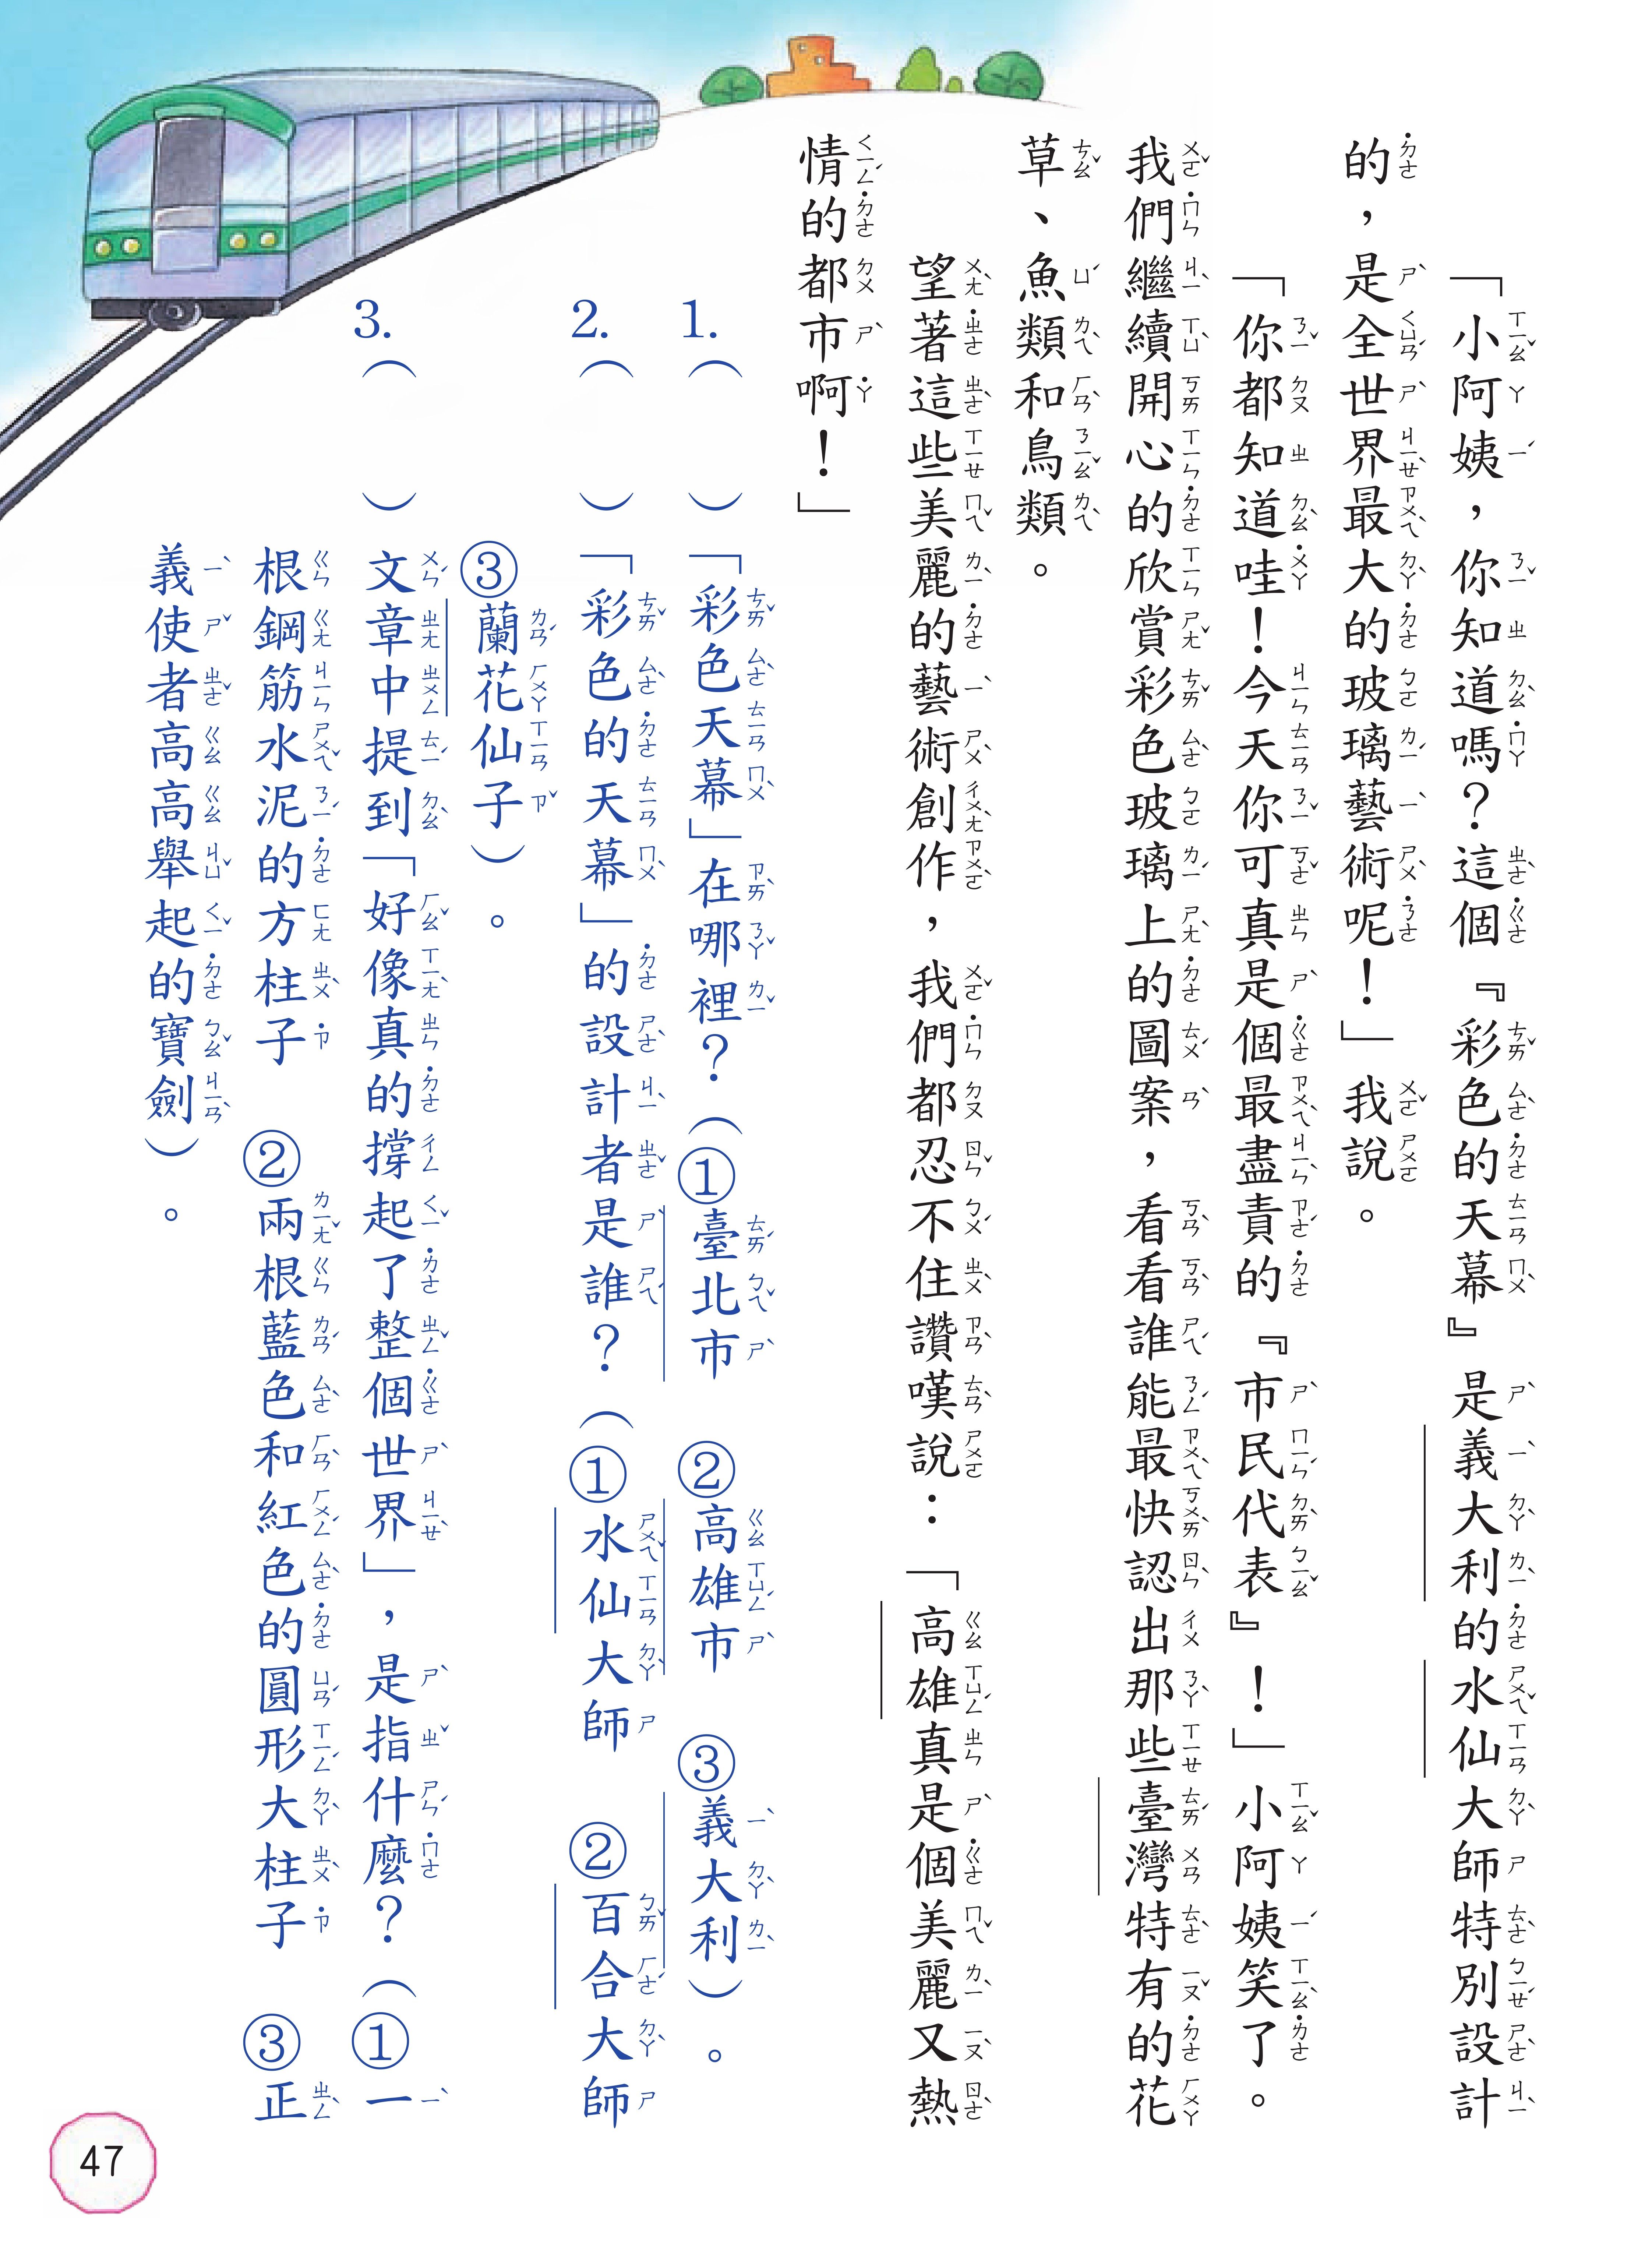 「小阿姨，你知道嗎？這個『彩色的天幕』是義大利的水仙大師特別設計
的，是全世界最大的玻璃藝術呢！」我說。
「你都知道哇！今天你可真是個最盡責的『市民代表』！」小阿姨笑了。
我們繼續開心的欣賞彩色玻璃上的圖案，看看誰能最快認出那些臺灣特有的花
草、魚類和鳥類。
望著這些美麗的藝術創作，我們都忍不住讚嘆說：「高雄真是個美麗又熱
情的都市啊！」
1.（　　）「彩色天幕」在哪裡？（①臺北市　②高雄市　③義大利）。
2.（　　）「彩色的天幕」的設計者是誰？（①水仙大師　②百合大師
③蘭花仙子）。
3.（　　）文章中提到「好像真的撐起了整個世界」，是指什麼？（①一
根鋼筋水泥的方柱子　②兩根藍色和紅色的圓形大柱子　③正
義使者高高舉起的寶劍）。
47